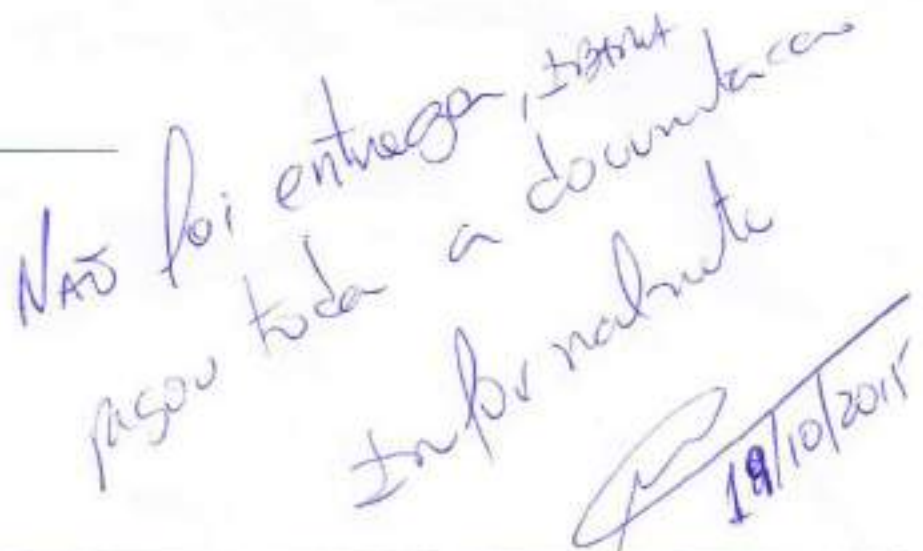 NÃO foi entregar,
pagou toda a documentacao
Informalmente
19/10/2015